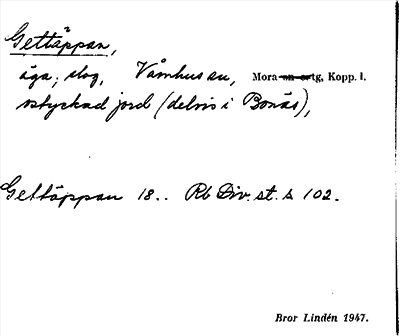 Gettäppan,
äga, slog, Våmhus sn, Mora tg, Kopp. l.
ostyckad jord (delvis i Bonäs),
Gettäppan 18.. Rb Div. st. s 102.
Bror Lindén 1947.